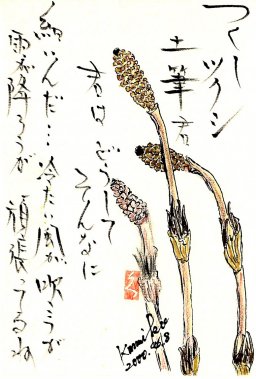 つくし
ツクシ
土筆君
君は どうして
そんなに
細いんだ… 冷たい風が、吹こうが
雨が降ろうが 頑張ってるね
2000.